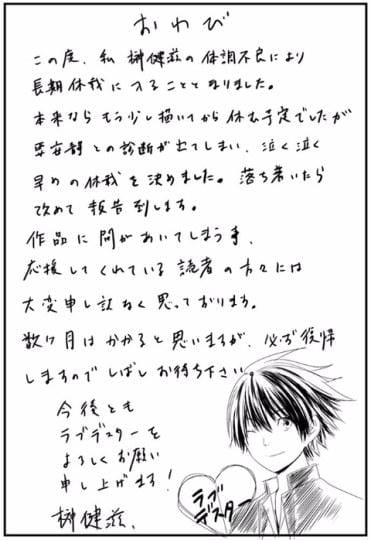 おわび
この度、私 榊健滋の体調不良により
長期休載に入ることとなりました。
本来ならもう少し描いてから休む予定でしたが
要安静との診断が出てしまい、泣く泣く
早めの休載を決めました。落ち着いたら
改めて報告致します。
作品に間があいてしまう事、
応援してくれている読者の方々には
大変申し訳なく思っております。
数ヶ月はかかると思いますが、必ず復帰
しますのでしばしお待ち下さい
今後とも
ラブデスターを
よろしくお願い
申し上げます!
榊健滋、
ラブ
デスター